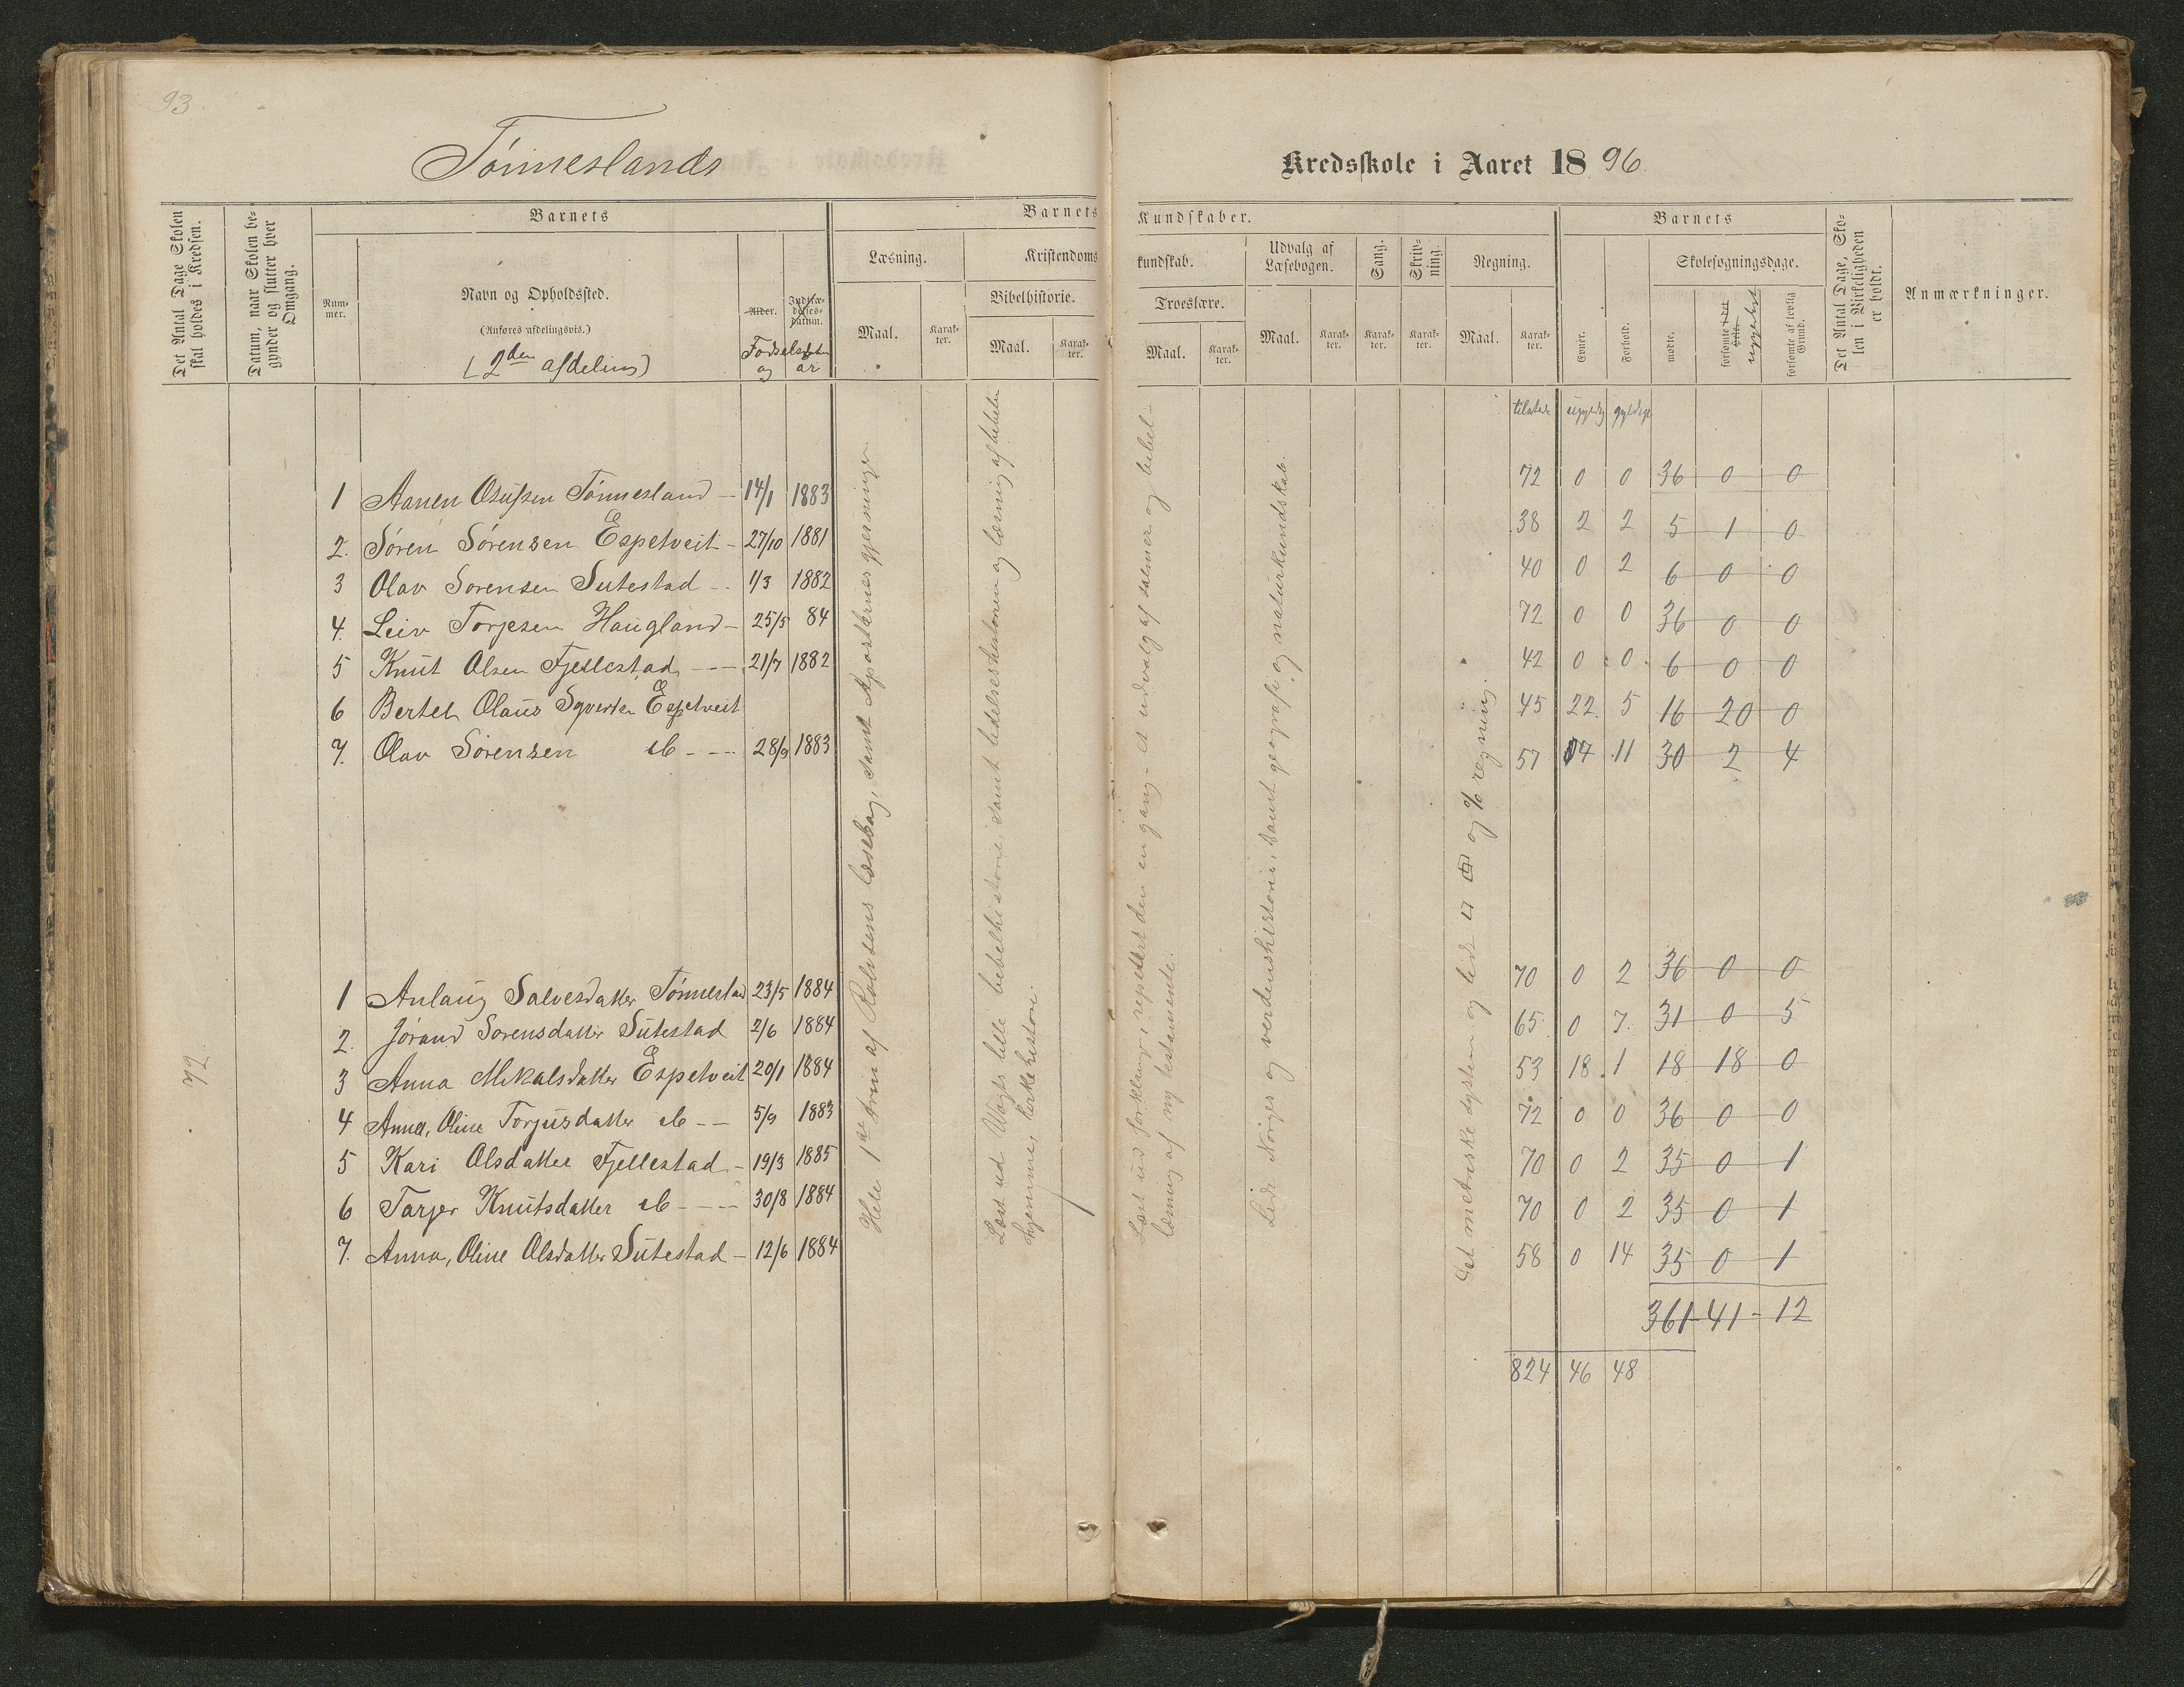 93
Tönneslands
Kredsskole i Aaret 1896.
Det Antal Dage Skolen skal holdes i Kredsen.
Datum, naar Skolen begynder og slutter hver Omgang.
Barnets
Num-
mer.
Navn og Opholdssted.
(Anføres afdelingsvis.)
(2den afdeling)
Alder.
Indtræ-
delses-
datum.
Fødselsdatum
og år
Barnets
Læsning.
Maal.
Karak-
ter.
Kristendoms
Bibelhistorie.
Maal.
Karak-
ter.
Kundskaber.
kundskab.
Troeslære.
Maal.
Karak-
ter.
Udvalg af
Læsebogen.
Maal.
Karak-
ter.
Sang.
Karak-
ter.
Skriv-
ning.
Karak-
ter.
Regning.
Maal.
Karak-
ter.
Barnets
Evner.
Forhold.
Skolesøgningsdage.
mødte.
forsømte i det Hele.
ugyldigt
forsømte af lovlig
Grund.
Det Antal Dage, Sko-
len i Virkeligheden
er holdt.
Anmærkninger.
tilstede ugyldig gyldige
1 Aanen Osufsen Tönnesland 14/1 1883 72 0 0 36 0 0
2. Sören Sörensen Espetveit 27/10 1881 38 2 2 5 1 0
3 Olav Sorensen Sutestad 1/3 1882 40 0 2 6 0 0
4. Leiv Torjesen Haugland 25/5 84 72 0 0 36 0 0
5 Knut Olsen Fjellestad 21/7 1882 42 0 0 6 0 0
6 Bertel Olaus Syverten Espetveit 45 22 5 16 20 0
7. Olav Sörensen ib 28/9 1883 57 4 11 30 2 4
72
1 Anlaug Salvesdatter Tönnestad 23/5 1884 70 0 2 36 0 0
2. Jörand Sorensdatter Sutestad 2/6 1884 65 0 7. 31 0 5
3 Anna Mikalsdatter Espetveit 20/1 1884 53 18 1 18 18 0
4 Anne, Oline Torjusdatter ib 5/9 1883 72 0 0 36 0 0
5 Kari Olsdatter Fjellestad 19/3 1885 70 0 2 35 0 1
6 Tarjer Knutsdatter ib 30/8 1884 70 0 2 35 0 1
7. Anna, Oline Olsdatter Sutestad 12/6 1884 58 0 14 35 0 1
361 - 41 - 12
824 46 48
Hele 1ste trin af Rolvsens læsebog, samt Apostlernes gjerninger.
Læst ud Vogts lille bibelhistorie, samt lidelseshistorien og læsning af bibelen
hjemme, kirkehistorie.
Læst ud forklaring, repetert den en gang - et udvalg af salmer og bibel-
læsning af ny testamente.
Lidt Norges og verdenshistorie, samt geografi og naturkundskab.
Det metriske system og lidt □ og % regning.